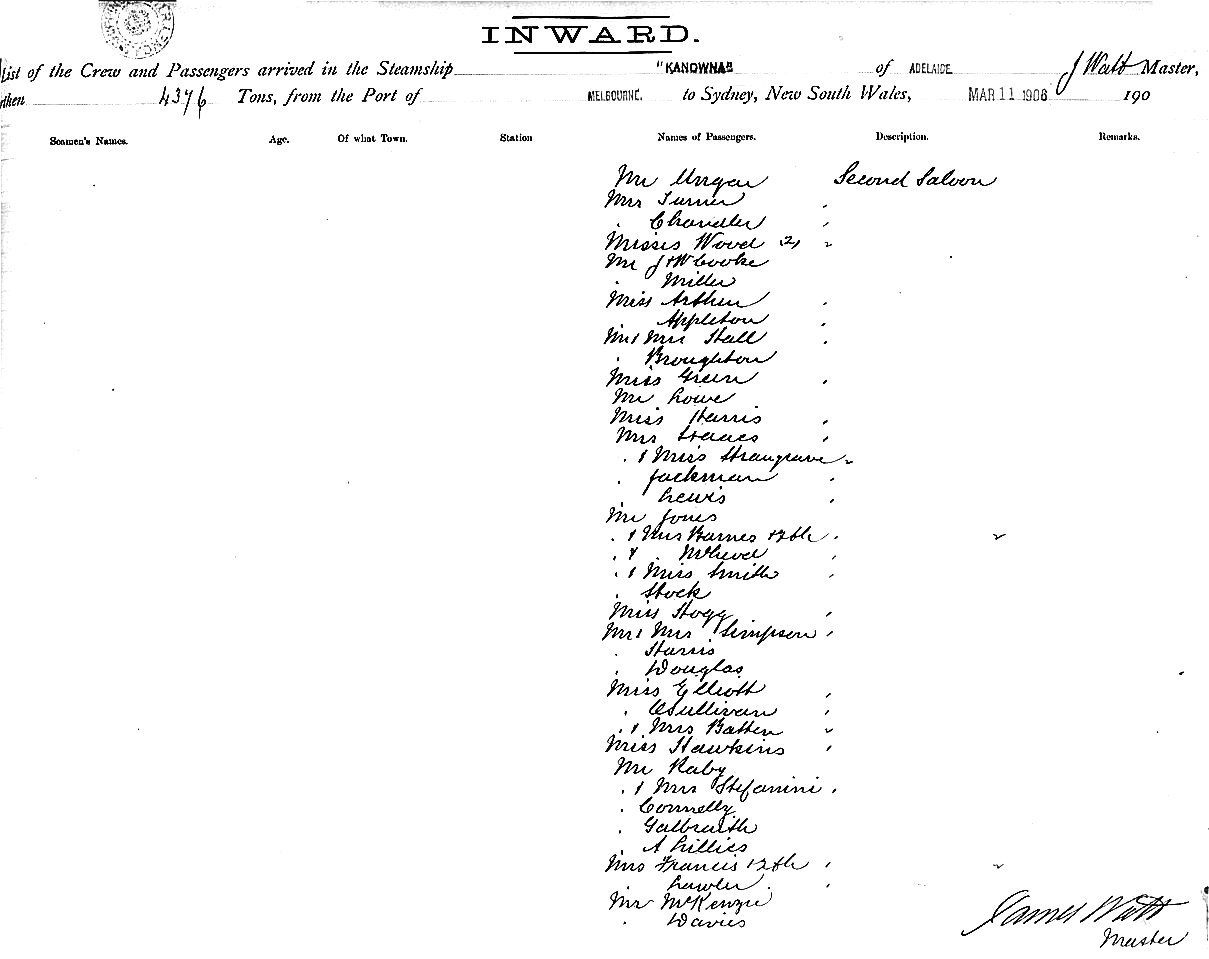 INWARD.
List of the Crew and Passengers arrived in the Steamship "KANOWNA" of ADELAIDE J Watt Master,
then 4376 Tons, from the Port of MELBOURNE. to Sydney, New South Wales, MAR 11 1906 190
Seamen's Names. Age. Of what Town. Station Names of Passengers. Description. Remarks.
Mr Second Saloon
Mrs Turner "
" Chandler "
Misses Wood (2) "
Mr J & W Cooke
" Miller
Miss Arthur "
Appleton "
Mr & Mrs Hall "
" Broughton
Miss Green "
Mr Lowe
Miss Harris "
Mrs Isaacs "
" & Miss Strangrave "
" Jackman "
" Lewis "
Mr Jones
" & Mrs Barnes "
" & " McLeod "
" & Miss Smith "
" Stock
Miss Hogg "
Mr & Mrs Simpson "
" Harris
" Douglas
Miss Elliott "
" OSullivan "
" & Mrs Batten "
Miss Hawkins "
Mr Raby
" & Mrs Stefanini "
" Connelly
" Galbraith
" A Lillies
Mrs Francis "
Lawler "
Mr McKenzie
" Davies
James Watt
Master